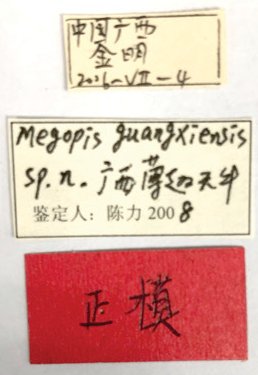 中国广西
金明
2006-VII-4
Megopis guangxiensis
sp. n. 广西薄翅天牛
鉴定人：陈力 2008
正模